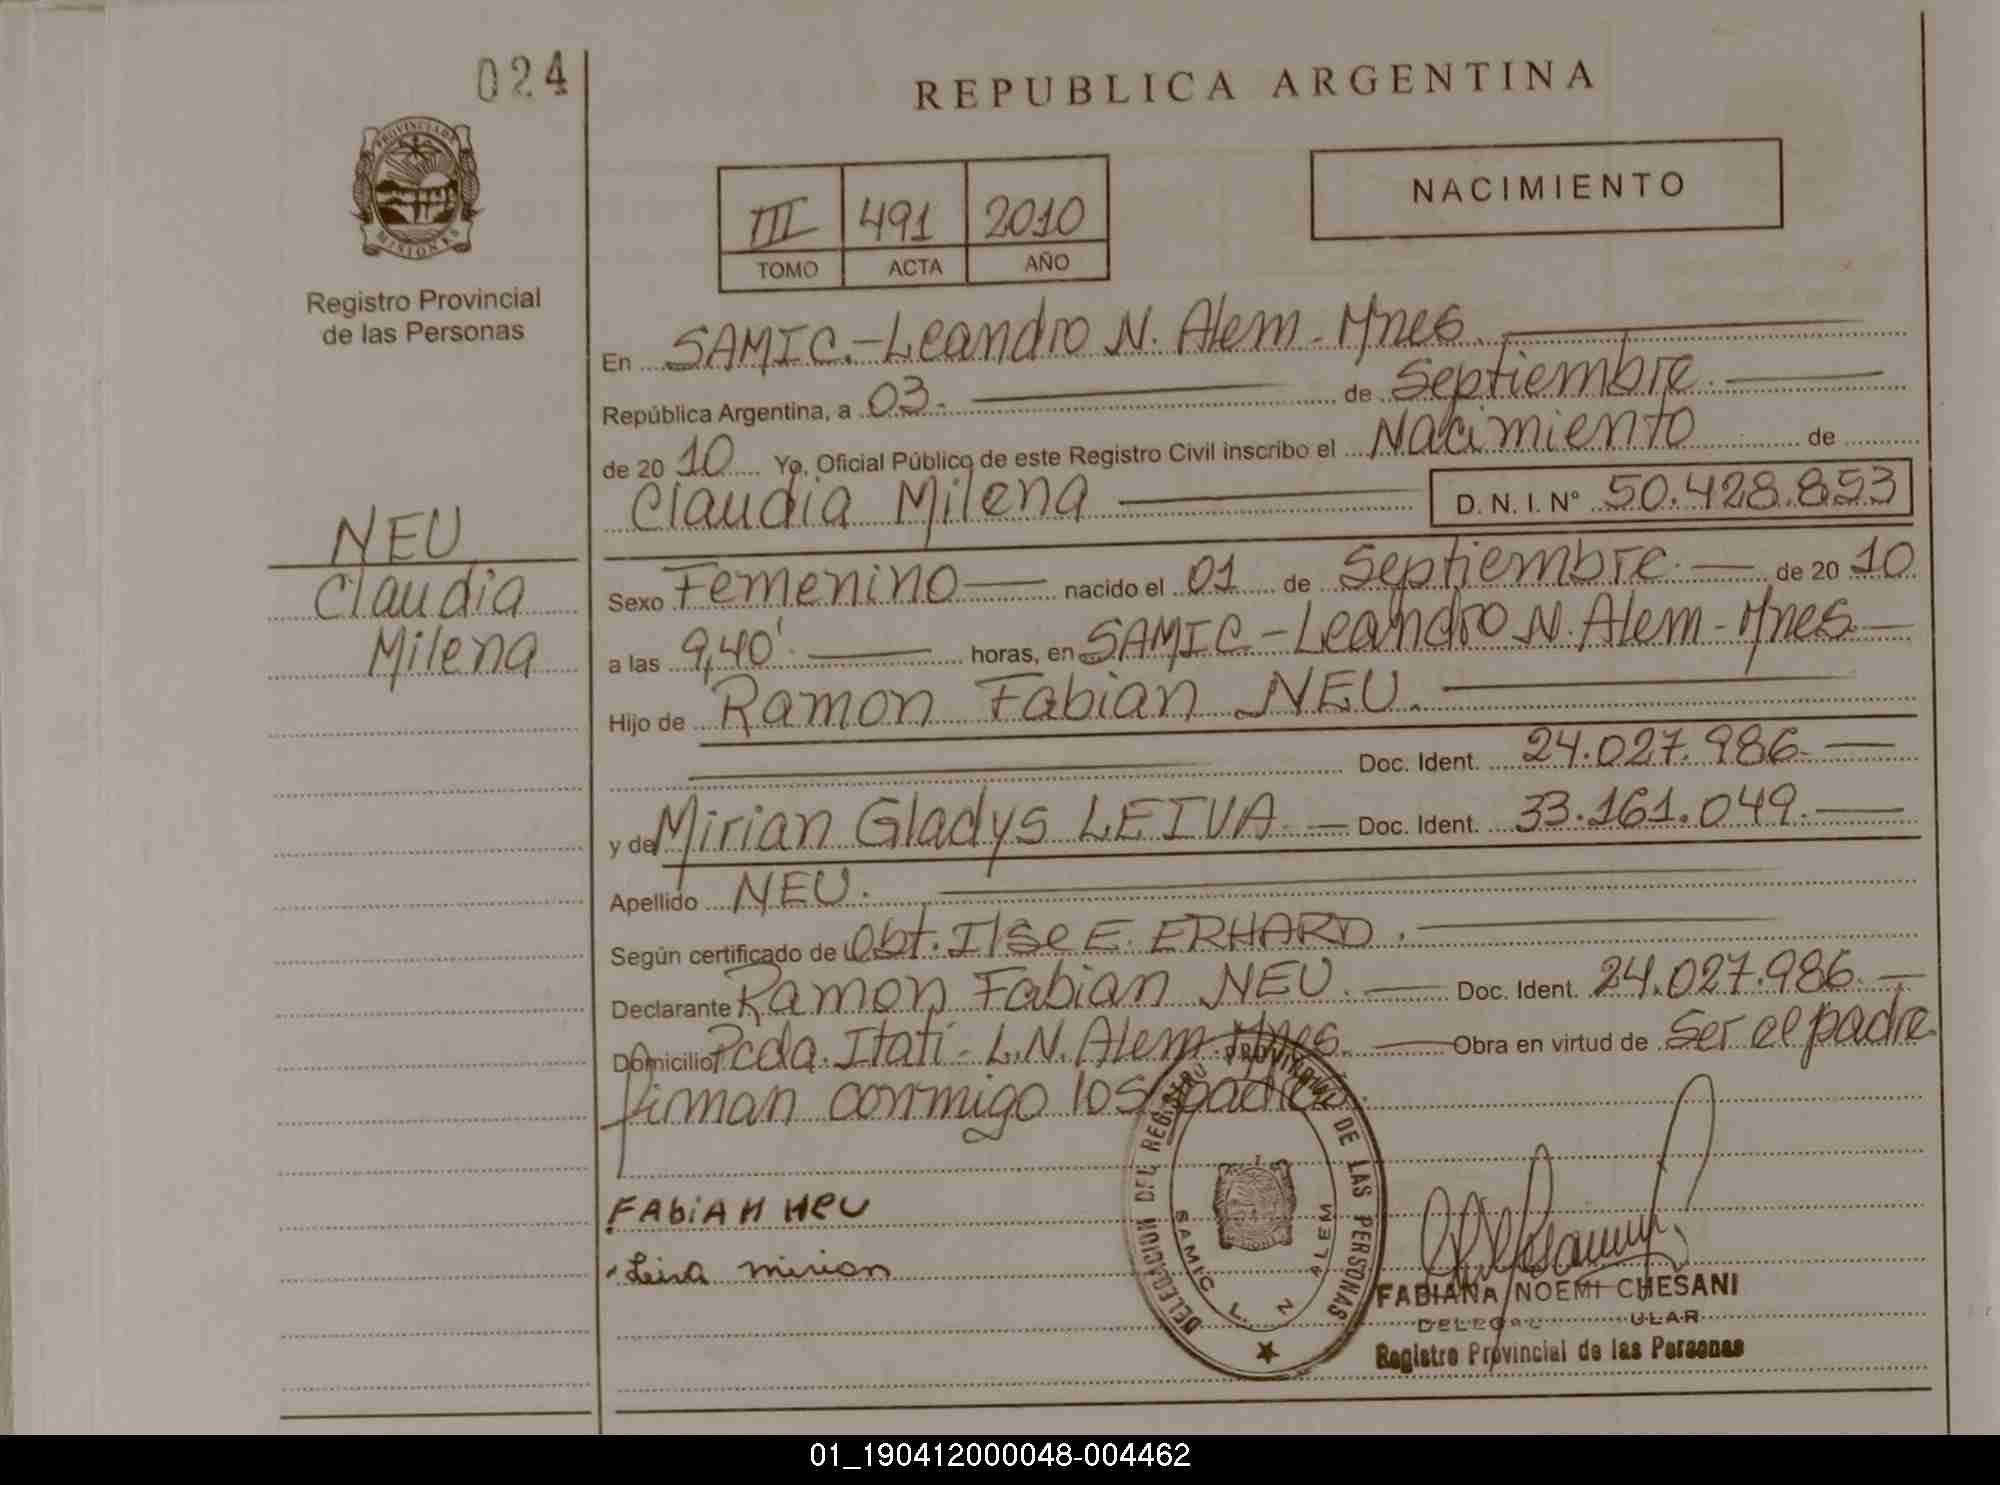 024
REPUBLICA ARGENTINA
PROVINCIA DE
MISIONES
Registro Provincial
de las Personas
III 491 2010
TOMO ACTA AÑO
NACIMIENTO
En SAMIC.-Leandro N. Alem-Mnes.
República Argentina, a 03. de Septiembre.
de 20 10 Yo, Oficial Público de este Registro Civil inscribo el Nacimiento de
Claudia Milena D. N. I. N° 50.428.853
NEU
Claudia
Milena
Sexo Femenino nacido el 01 de Septiembre. de 20 10
a las 9,40'. horas, en SAMIC-Leandro N. Alem-Mnes.
Hijo de Ramon Fabian NEU.
Doc. Ident. 24.027.986.
y de Mirian Gladys LEIVA. Doc. Ident. 33.161.049.
Apellido NEU.
Según certificado de Obt. Ilse E. ERHARD.
Declarante Ramon Fabian NEU. Doc. Ident. 24.027.986.
Domicilio Pcda. Itati-L.N. Alem-Mnes. Obra en virtud de Ser el padre.
firman conmigo los padres.
FAbiAN Neu
Leiva mirian
DELEGACION DEL REGISTRO PROVINCIAL DE LAS PERSONAS
SAMIC L. N. ALEM
FABIANA NOEMI CHESANI
Registro Provincial de las Personas
01_190412000048-004462